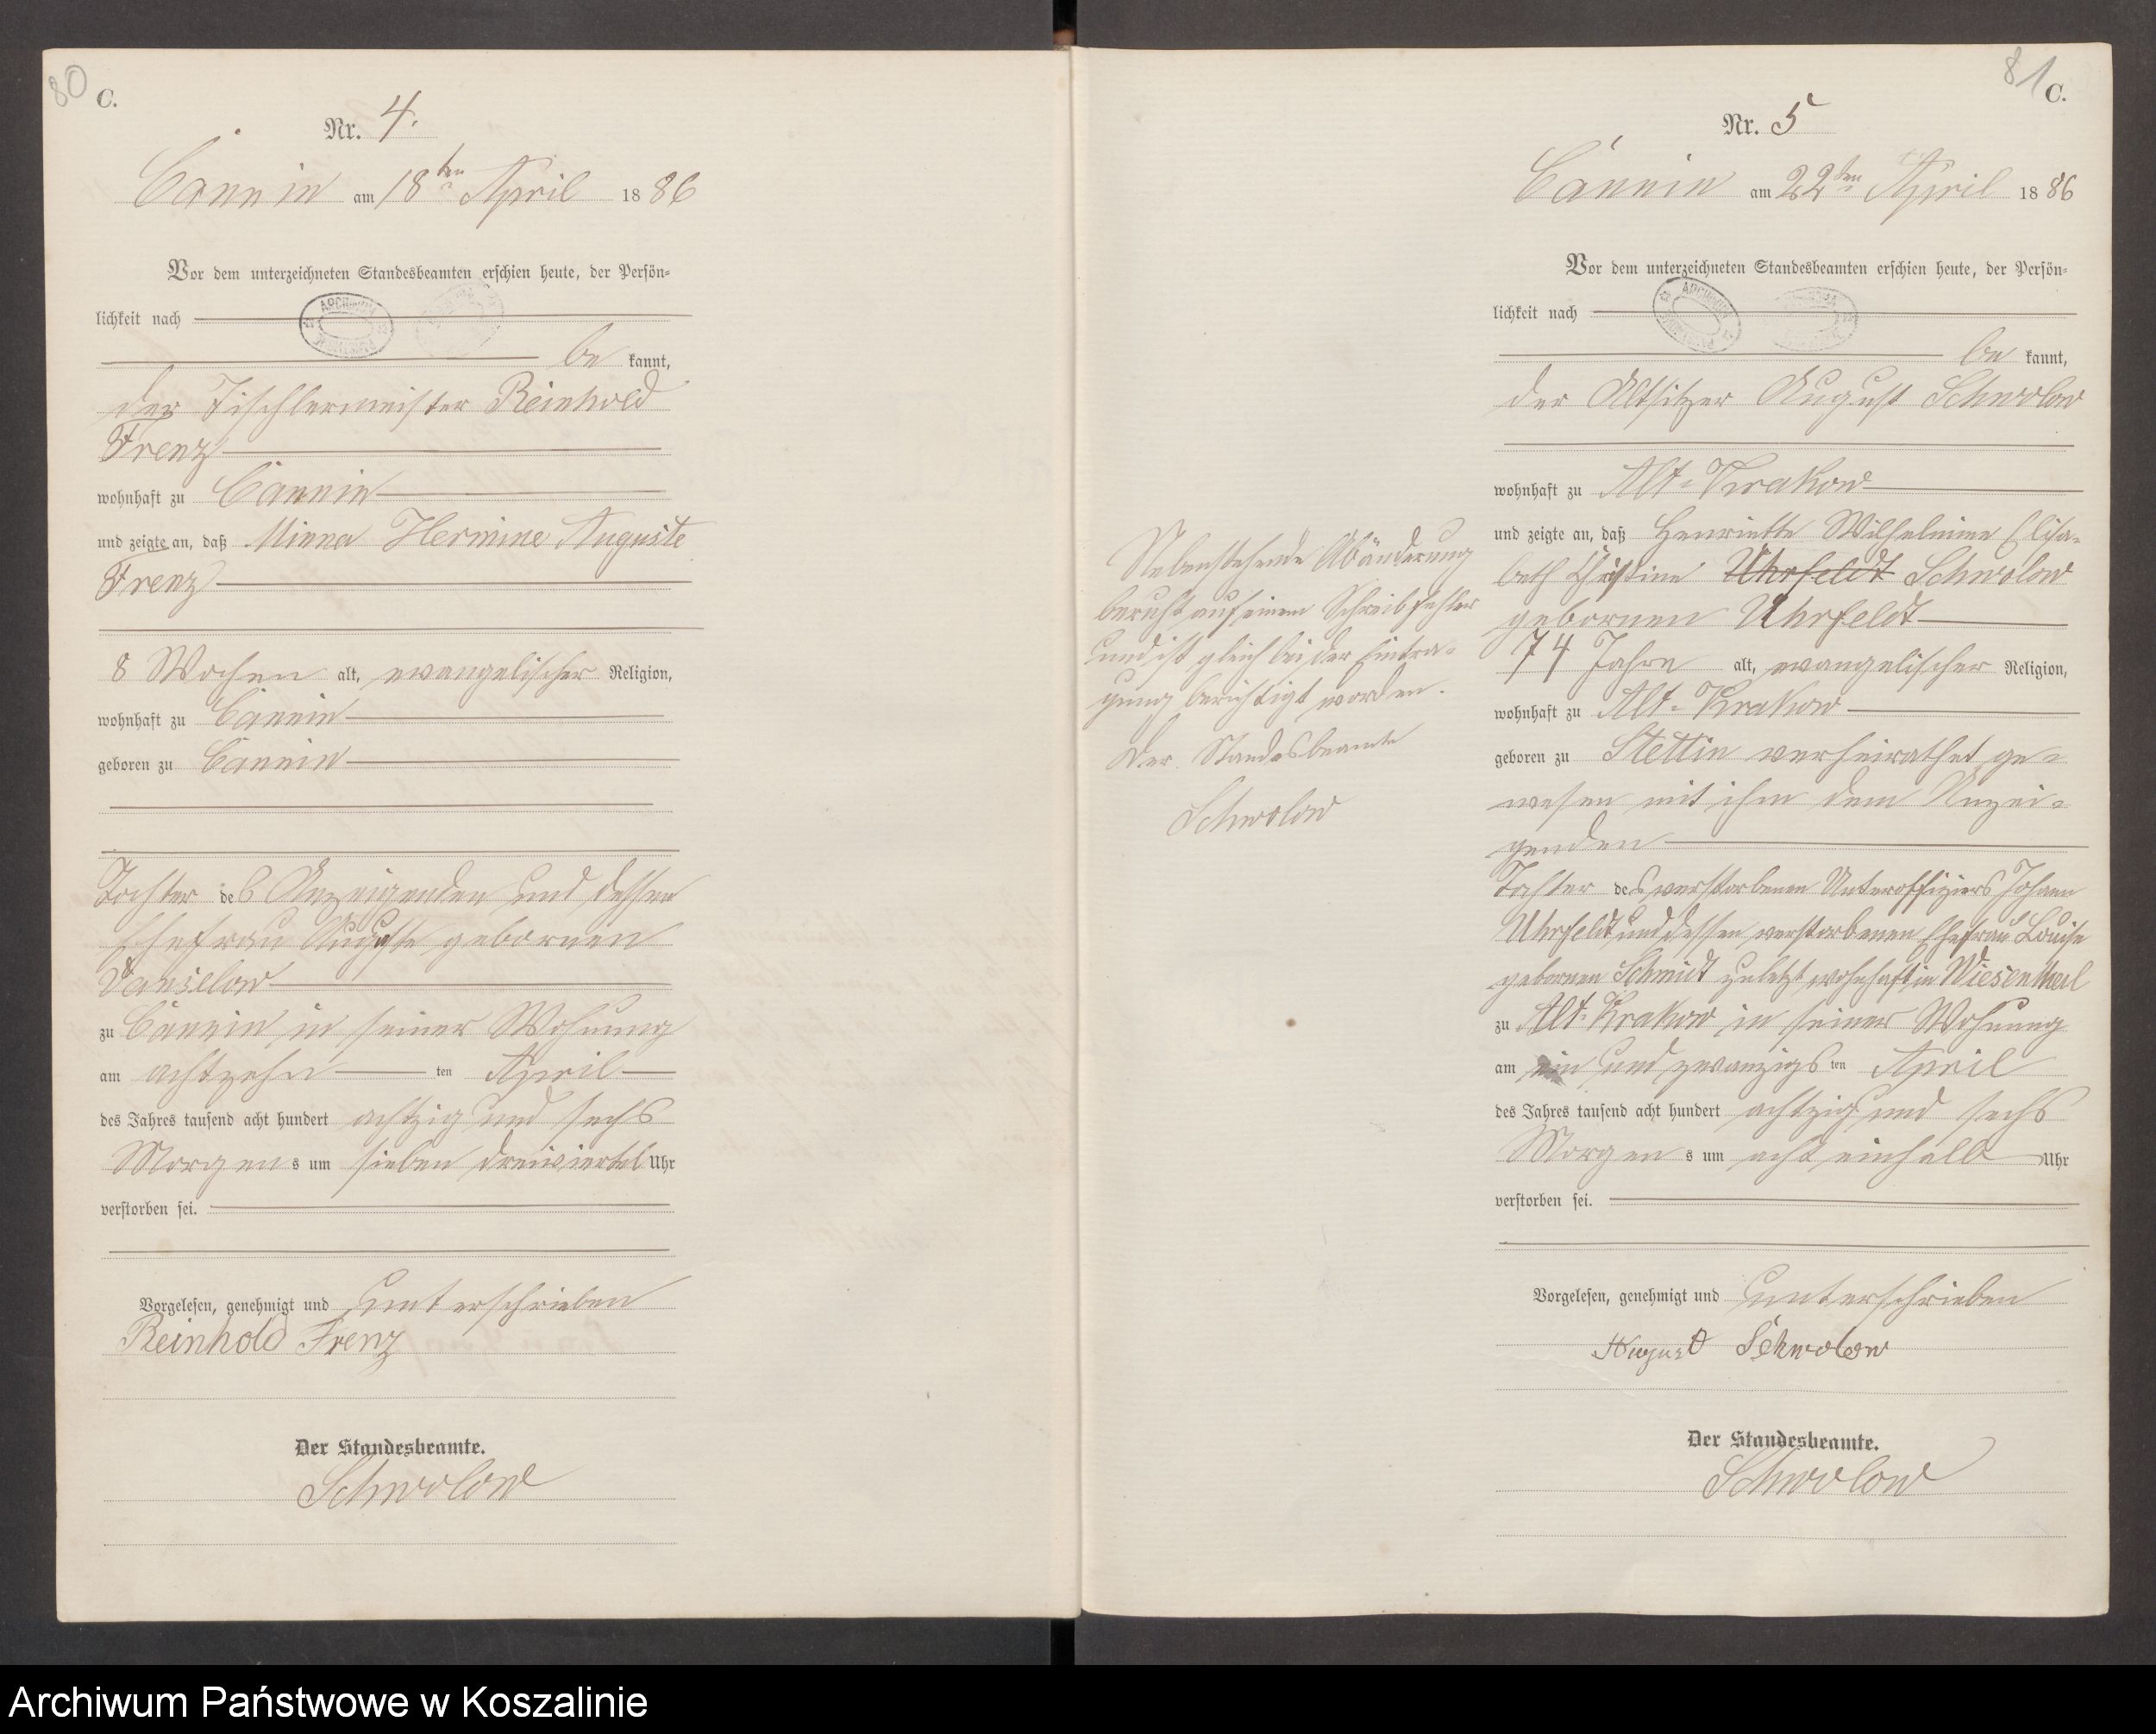 80
C.
Nr. 4.
Cannin am 18ten April 1886
Vor dem unterzeichneten Standesbeamten erschien heute, der Persön-
lichkeit nach
be kannt,
der Tischlermeister Reinhold
Frenz
wohnhaft zu Cannin
und zeigte an, daß Minna Hermine Auguste
Frenz
8 Wochen alt, evangelischer Religion,
wohnhaft zu Cannin
geboren zu Cannin
Tochter des Anzeigenden und dessen
Ehefrau Auguste gebornen
Vanselow
zu Cannin in seiner Wohnung
am achtzehn ten April
des Jahres tausend acht hundert achtzig und sechs
Morgens um sieben dreiviertel Uhr
verstorben sei.
Vorgelesen, genehmigt und unterschrieben
Reinhold Frenz
Der Standesbeamte.
Schwolow
Nebenstehende Abänderung
beruht auf einem Schreibfehler
und ist gleich bei der Eintra-
gung berichtigt worden.
Der Standesbeamte
Schwolow
81
C.
Nr. 5
Cannin am 22ten April 1886
Vor dem unterzeichneten Standesbeamten erschien heute, der Persön-
lichkeit nach
be kannt,
der Altsitzer August Schwolow
wohnhaft zu Alt-Krakow
und zeigte an, daß Henriette Wilhelmine Elisa-
beth Christine Uhrfeldt Schwolow
gebornen Uhrfeldt
74 Jahre alt, evangelischer Religion,
wohnhaft zu Alt-Krakow
geboren zu Stettin verheirathet ge-
wesen mit ihm dem Anzei-
genden
Tochter des verstorbenen Unteroffiziers Johann
Uhrfeldt und dessen verstorbenen Ehefrau Louise
gebornen Schmidt zuletzt wohnhaft in Wiesenthal
zu Alt-Krakow in seiner Wohnung
am ein und zwanzigsten April
des Jahres tausend acht hundert achtzig und sechs
Morgens um acht einhalb Uhr
verstorben sei.
Vorgelesen, genehmigt und unterschrieben
August Schwolow
Der Standesbeamte.
Schwolow
Archiwum Państwowe w Koszalinie